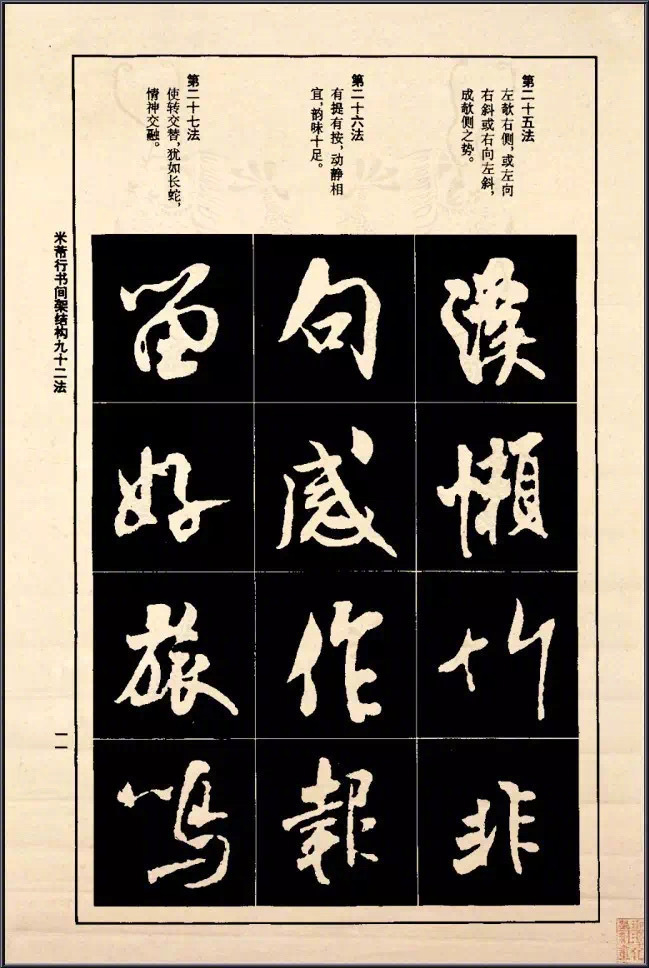 第二十五法
左欹右侧，或左向
右斜或右向左斜，
成欹侧之势。
懶
竹
非
第二十六法
有提有按，动静相
宜，韵味十足。
句
感
作
報
第二十七法
使转交替，犹如长蛇，
情神交融。
留
好
旅
鳴
米芾行书间架结构九十二法
一一